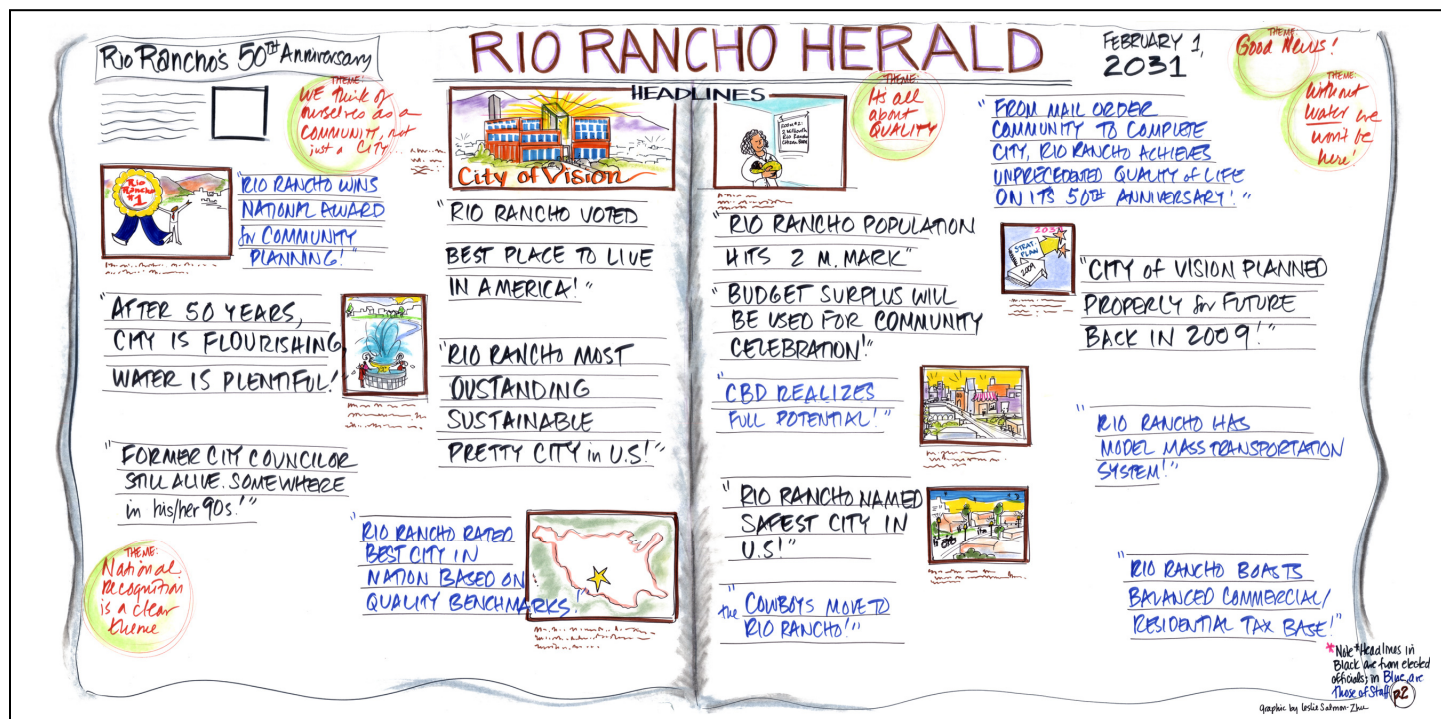 Rio Rancho's 50TH Anniversary
RIO RANCHO HERALD
FEBRUARY 1,
2031
HEADLINES
THEME:
WE think of
ourselves as a
COMMUNITY, not
just a CITY...
Rio
Rancho
#1
"RIO RANCHO WINS
NATIONAL AWARD
for COMMUNITY
PLANNING!"
"AFTER 50 YEARS,
CITY IS FLOURISHING
WATER IS PLENTIFUL!"
"FORMER CITY COUNCILOR
STILL ALIVE. SOMEWHERE
in his/her 90s!"
THEME:
National
Recognition
is a clear
theme
City of Vision
"RIO RANCHO VOTED
BEST PLACE TO LIVE
IN AMERICA!"
"RIO RANCHO MOST
OUSTANDING
SUSTAINABLE
PRETTY CITY in U.S!"
"RIO RANCHO RATED
BEST CITY IN
NATION BASED ON
QUALITY BENCHMARKS!"
THEME:
It's all
about
QUALITY
"RIO RANCHO POPULATION
HITS 2 M. MARK"
"BUDGET SURPLUS WILL
BE USED FOR COMMUNITY
CELEBRATION!"
"CBD REALIZES
FULL POTENTIAL!"
"RIO RANCHO NAMED
SAFEST CITY IN
U.S!"
"the COWBOYS MOVE TO
RIO RANCHO!"
"FROM MAIL ORDER
COMMUNITY TO COMPLETE
CITY, RIO RANCHO ACHIEVES
UNPRECEDENTED QUALITY of LIFE
ON ITS 50TH ANNIVERSARY!"
THEME:
Good News!
THEME:
Without
water we
won't be
here!
STRAT.
PLAN
2009
"CITY of VISION PLANNED
PROPERLY for FUTURE
BACK IN 2009!"
"RIO RANCHO HAS
MODEL MASS TRANSPORTATION
SYSTEM!"
"RIO RANCHO BOASTS
BALANCED COMMERCIAL/
RESIDENTIAL TAX BASE!"
*Note* Headlines in
Black are from elected
officials; in Blue, are
Those of Staff
p2
graphic by Leslie Salmon-Zhu